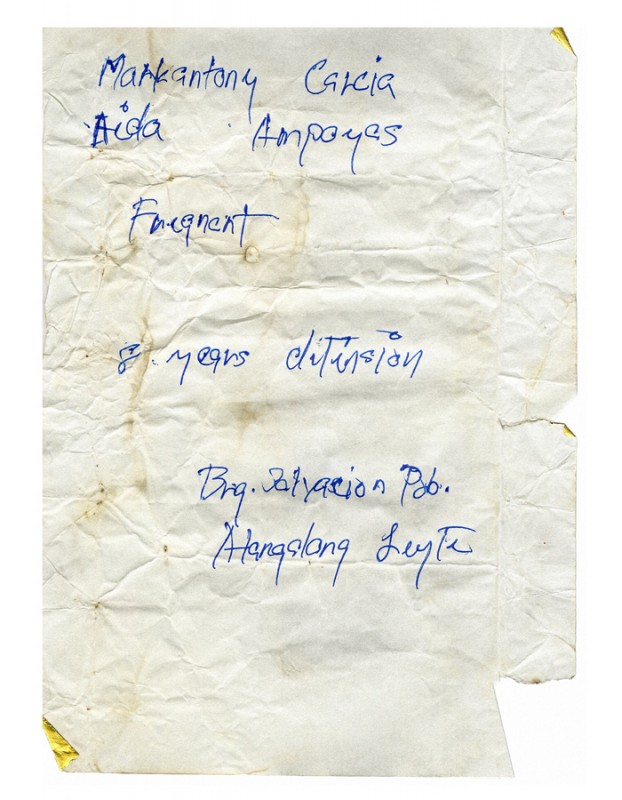 Markantony Garcia
Aida Ampayas
Frequent
8. years ditinsion
Brg. Salvacion Pob.
Alangalang Leyte